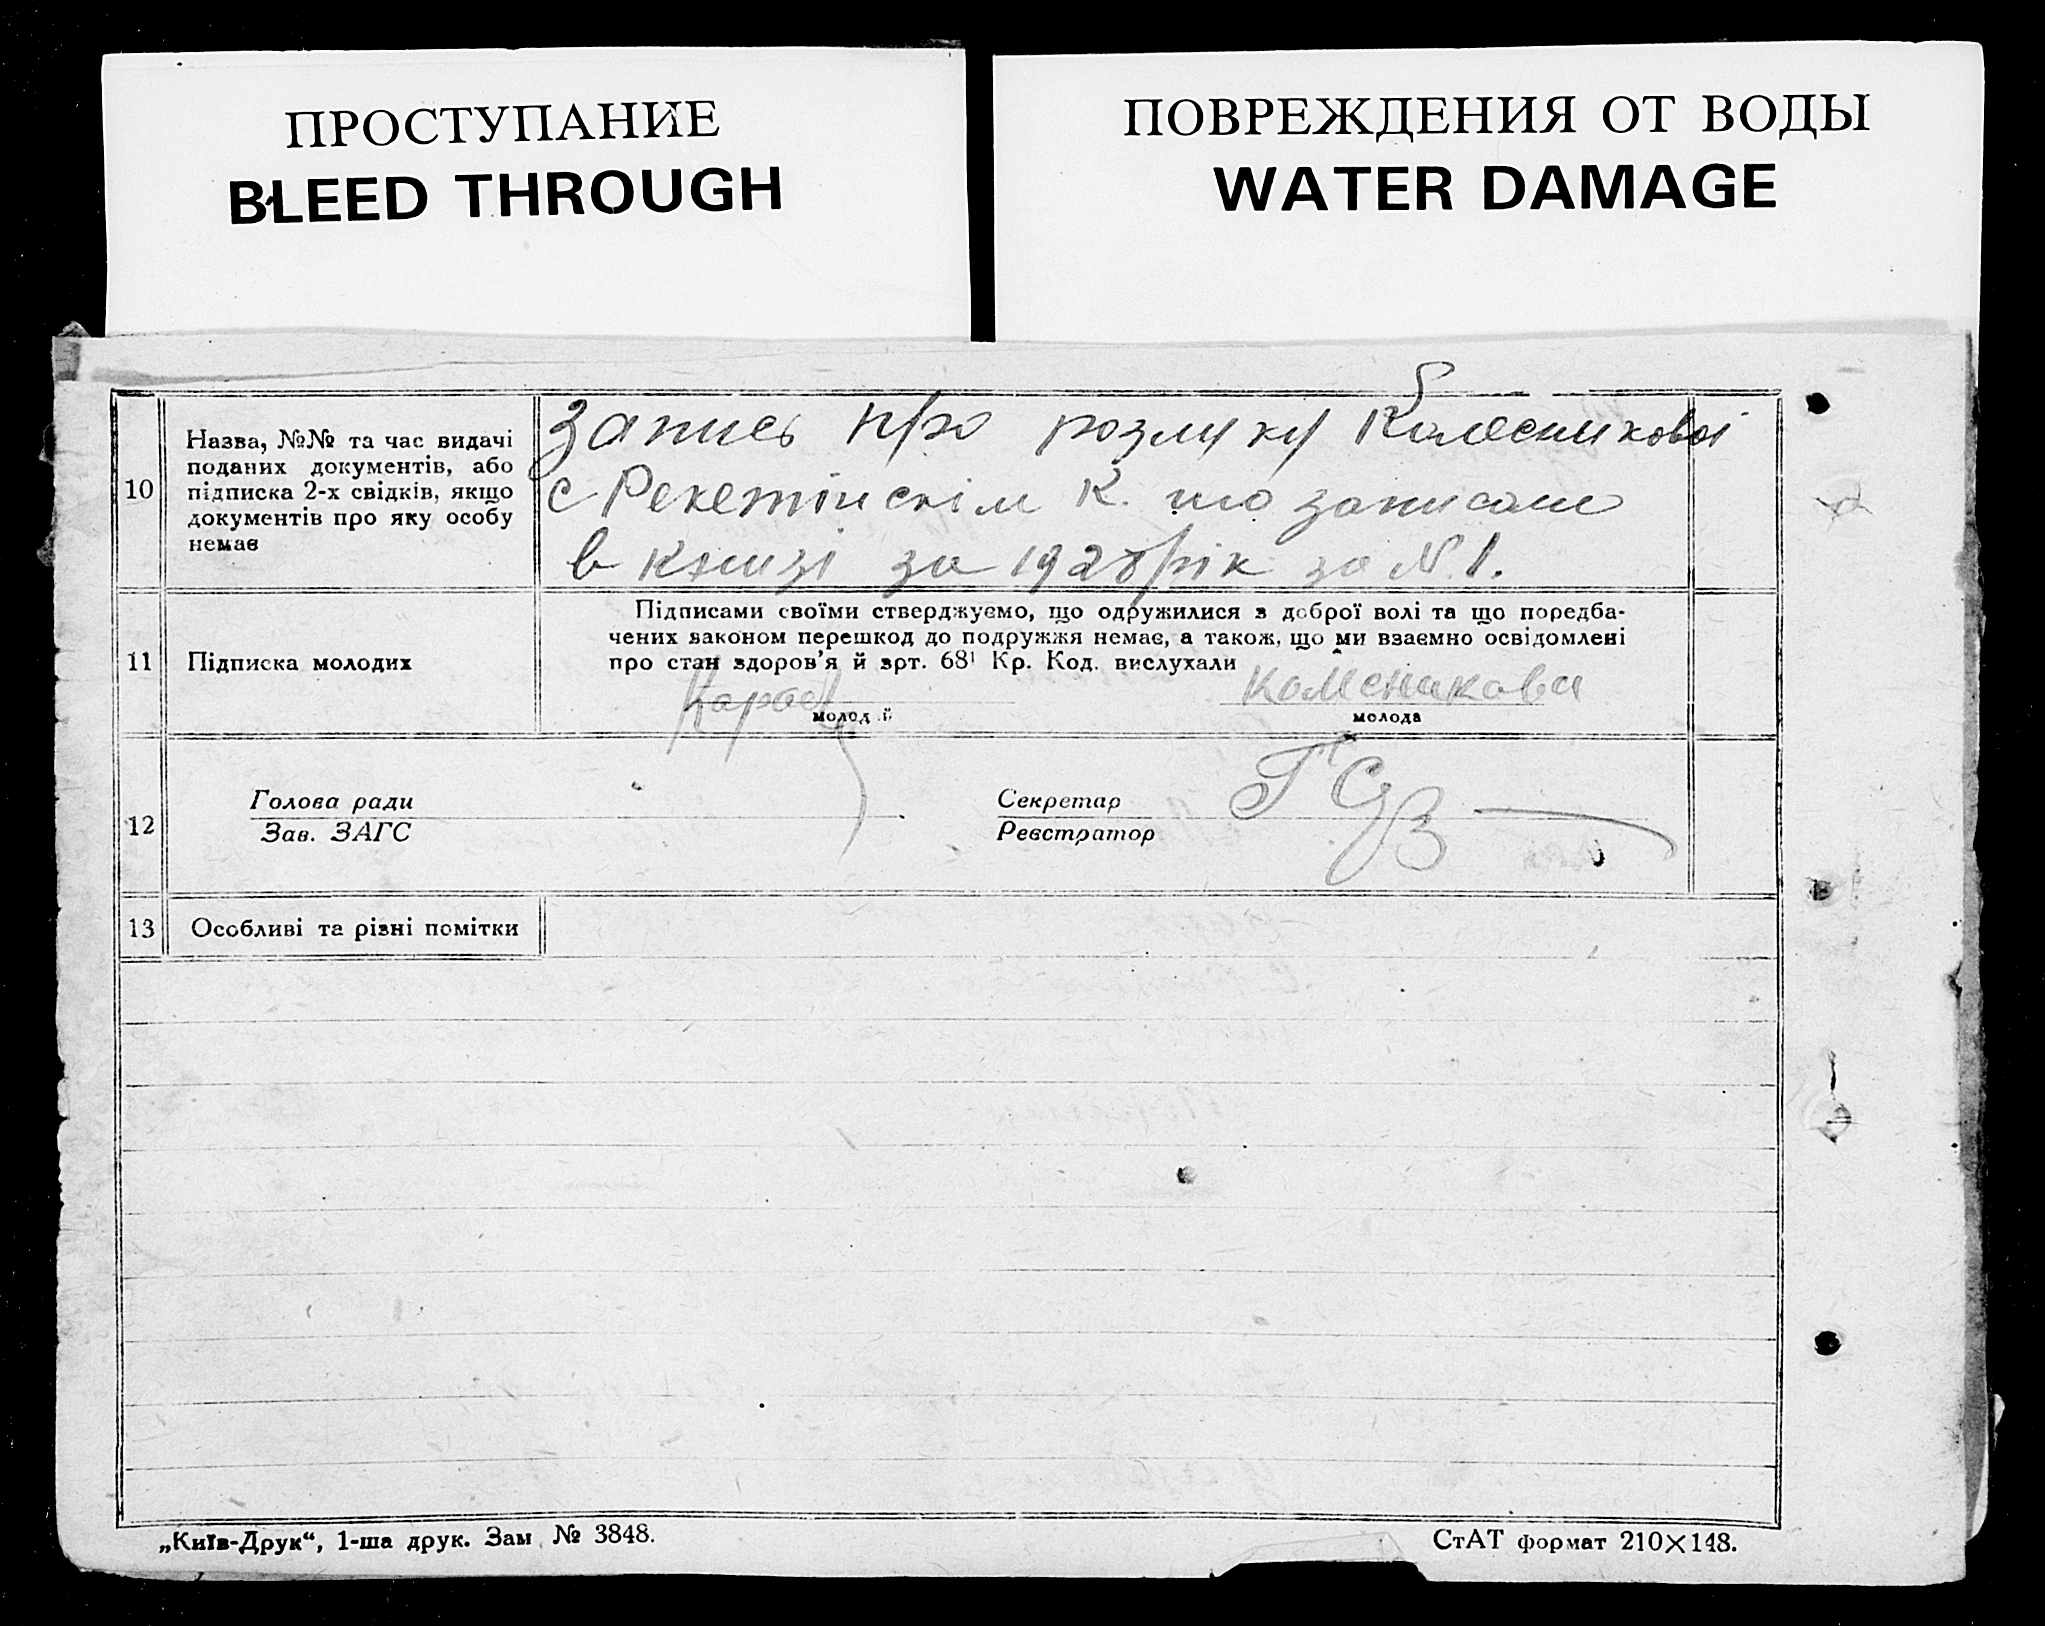 ПРОСТУПАНИЕ
BLEED THROUGH
ПОВРЕЖДЕНИЯ ОТ ВОДЫ
WATER DAMAGE
10
Назва, №№ та час видачі
поданих документів, або
підписка 2-х свідків, якщо
документів про яку особу
немає
Запись про розлуку Колесникової
с К. що записано
в книзі за 1928 рік за N. 1.
11
Підписка молодих
Підписами своїми стверджуємо, що одружилися з доброї волі та що поредба-
чених законом перешкод до подружжя немає, а також, що ми взаємно освідомлені
про стан здоров'я й арт. 68¹ Кр. Код. вислухали
Колєникова
молодий
молода
12
Голова ради
Зав. ЗАГС
Секретар
Реєстратор
13
Особливі та різні помітки
„Київ-Друк“, 1-ша друк. Зам. № 3848.
СтАТ формат 210×148.